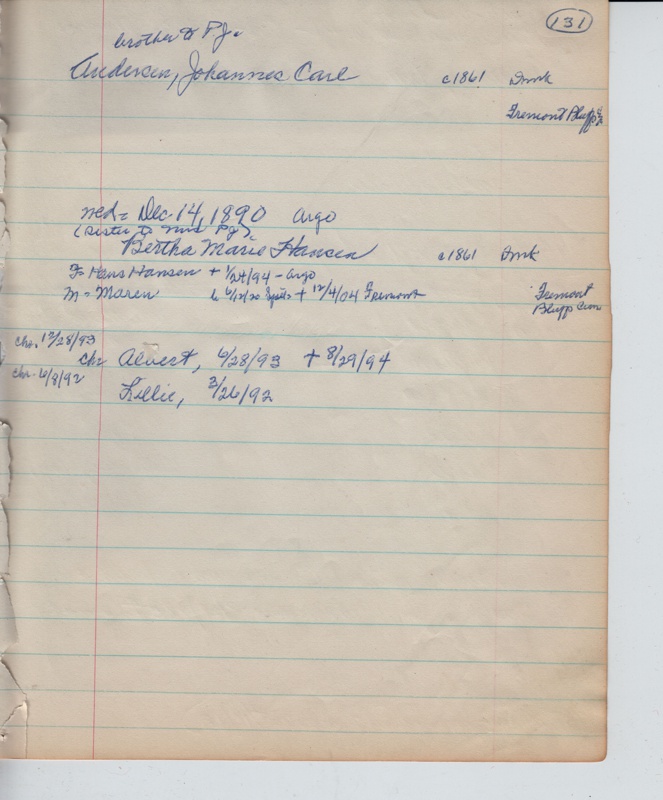 131
brother to P.J.
Andersen, Johannes Carl c1861 Dmk
Fremont Bluffs
md = Dec 14, 1890 Argo
(sister to Mrs P.J.)
Bertha Marie Hansen c1861 Dmk
F = Hans Hansen + 1/24/94 - Argo
M = Maren b 6/12/20 + 12/4/04 Fremont
Fremont
Bluffs Cem
chr. 12/28/93
chr Alvert, 6/28/93 + 8/29/94
chr. 6/8/92
Lillie, 3/26/92